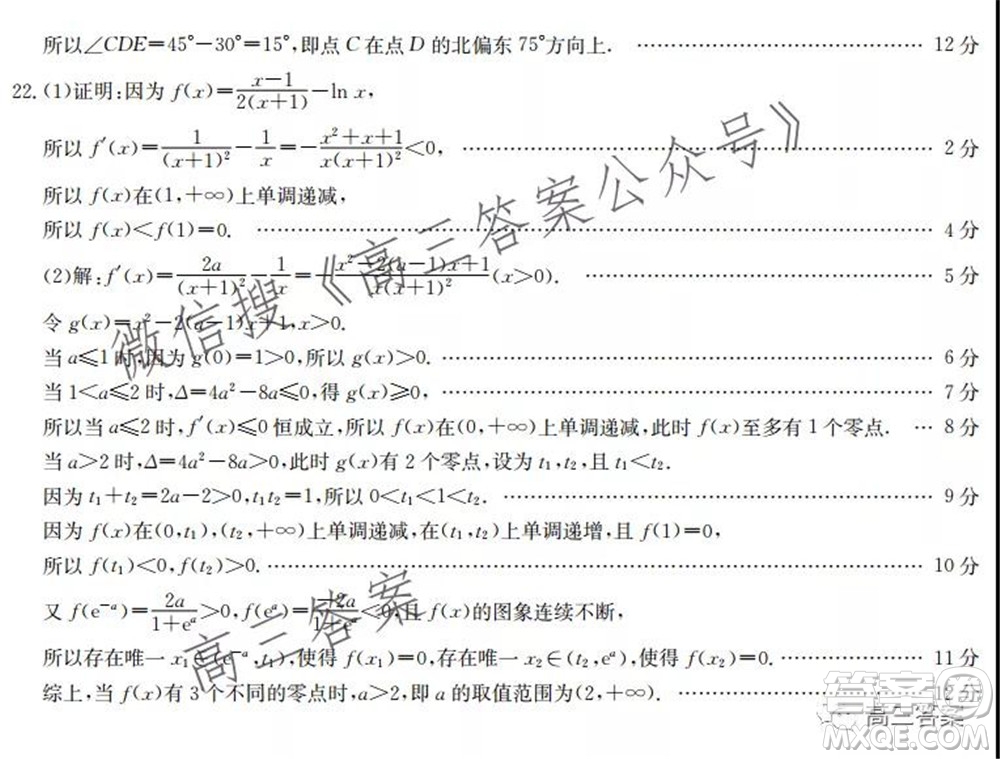 所以∠CDE=45°-30°=15°,即点C在点D的北偏东75°方向上. ………………… 12分
22.(1)证明:因为 f(x)=\frac{x-1}{2(x+1)}-ln x,
所以 f′(x)=\frac{1}{(x+1)^2}-\frac{1}{x}=-\frac{x^2+x+1}{x(x+1)^2}<0, ………………… 2分
所以 f(x)在(1,+∞)上单调递减,
所以 f(x)<f(1)=0. ………………… 4分
(2)解:f′(x)=\frac{2a}{(x+1)^2}-\frac{1}{x}=-\frac{x^2-2(a-1)x+1}{x(x+1)^2}(x>0). ………………… 5分
令 g(x)=x²-2(a-1)x+1,x>0.
当 a≤1 时,因为 g(0)=1>0,所以 g(x)>0. ………………… 6分
当 1<a≤2 时,Δ=4a²-8a≤0,得 g(x)≥0. ………………… 7分
所以当 a≤2 时,f′(x)≤0 恒成立,所以 f(x)在(0,+∞)上单调递减,此时 f(x)至多有 1 个零点. … 8分
当 a>2 时,Δ=4a²-8a>0,此时 g(x)有 2 个零点,设为 t₁,t₂,且 t₁<t₂.
因为 t₁+t₂=2a-2>0,t₁t₂=1,所以 0<t₁<1<t₂. ………………… 9分
因为 f(x)在(0,t₁),(t₂,+∞)上单调递减,在(t₁,t₂)上单调递增,且 f(1)=0,
所以 f(t₁)<0,f(t₂)>0. ………………… 10分
又 f(e⁻ᵃ)=\frac{2a}{1+e^a}>0,f(eᵃ)=\frac{-2a}{1+e^a}<0,且 f(x)的图象连续不断,
所以存在唯一 x₁∈(e⁻ᵃ,t₁),使得 f(x₁)=0,存在唯一 x₂∈(t₂,eᵃ),使得 f(x₂)=0. ………………… 11分
综上,当 f(x)有 3 个不同的零点时,a>2,即 a 的取值范围为(2,+∞). ………………… 12分
微信搜《高三答案公众号》
高三答案
高三答案
答案圈
MXQE.COM